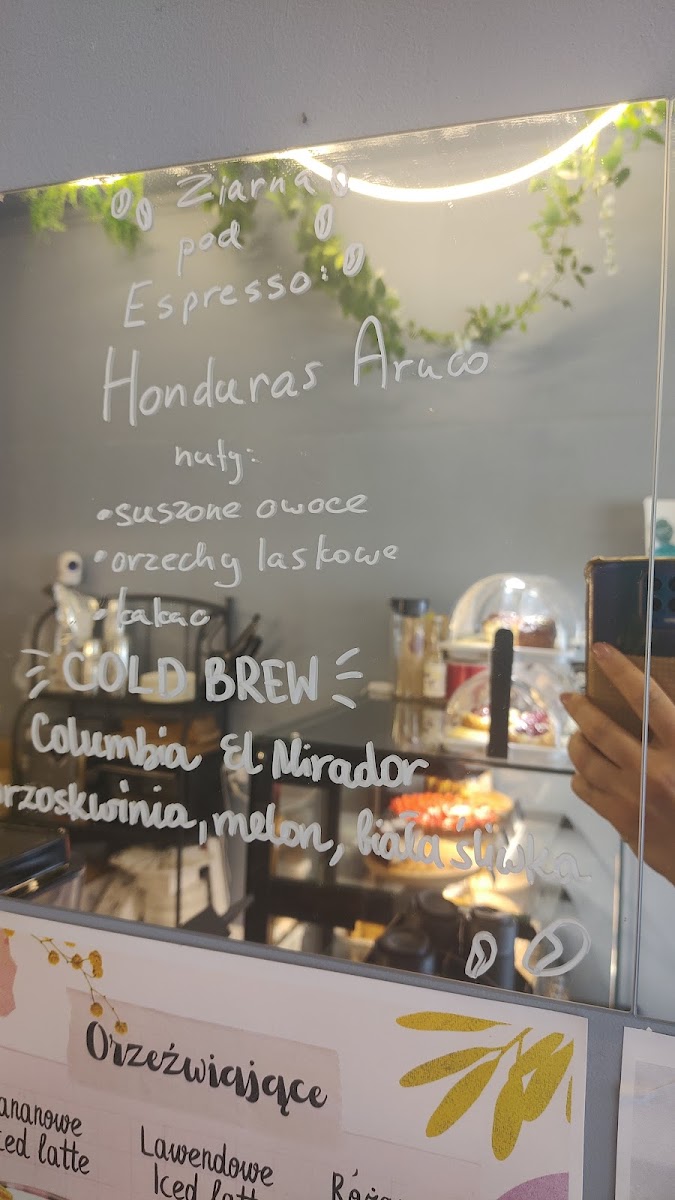 Ziarna
pod
Espresso:
Honduras Aruco
nuty:
•suszone owoce
•orzechy laskowe
•kakao
COLD BREW
Columbia El Mirador
rzoskwinia, melon, biała śliwka
Orzeźwiające
ananowe
ced latte
Lawendowe
Iced latt
Róża